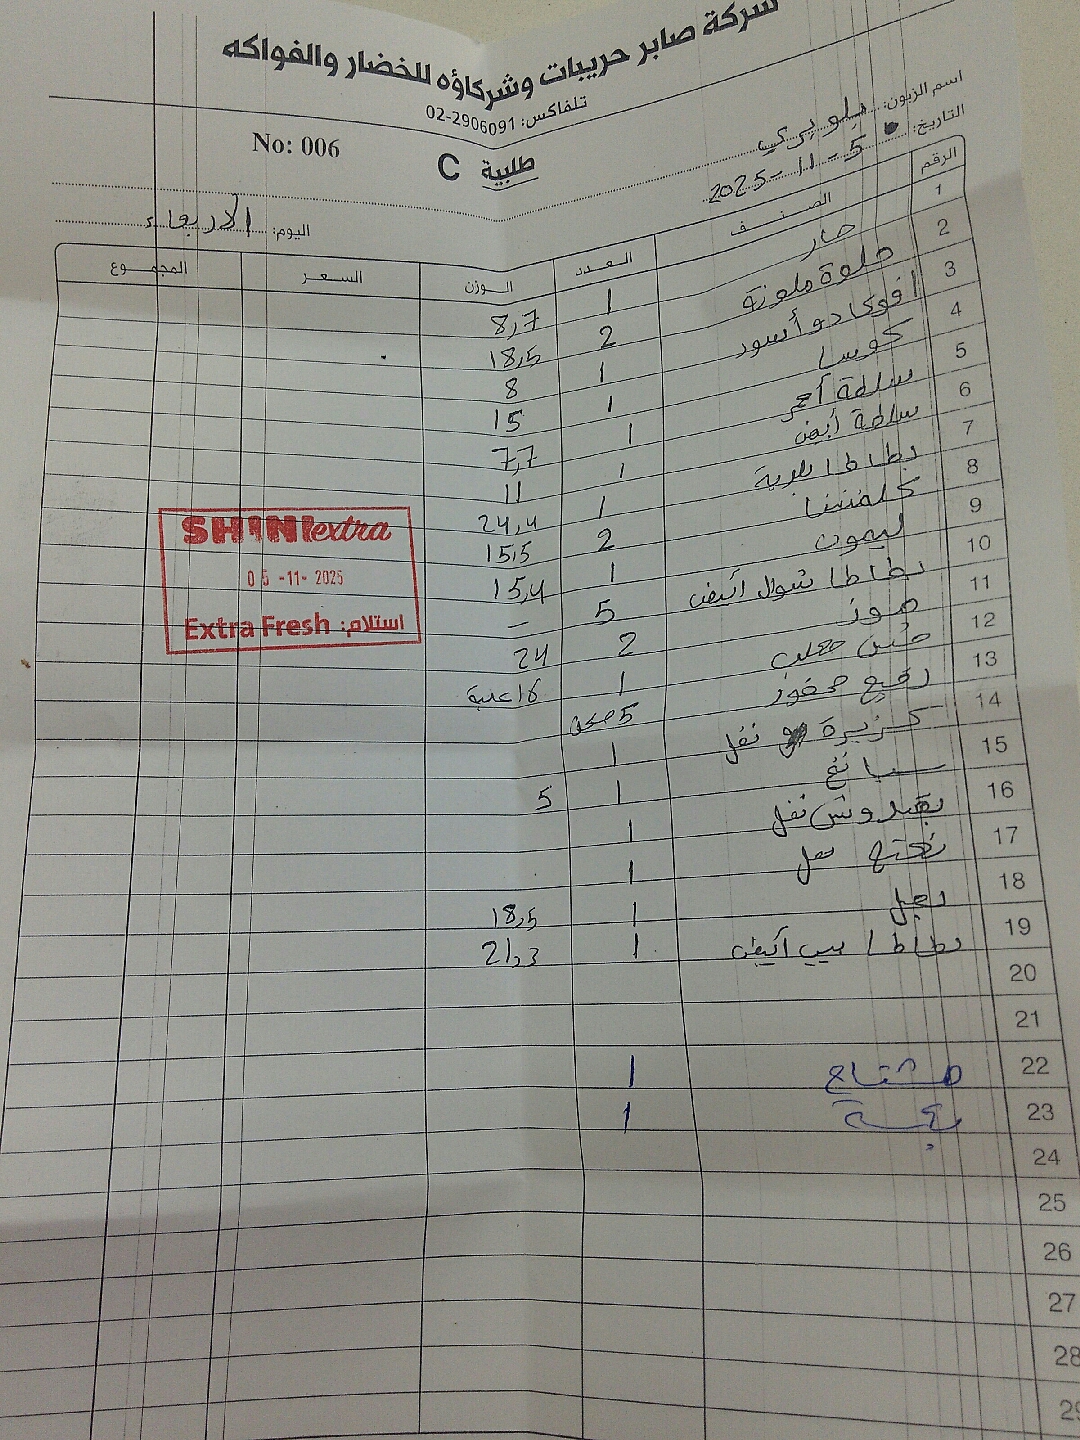 شركة صابر حريبات وشركاؤه للخضار والفواكه
تلفاكس: 02-2906091
No: 006
طلبية C
اسم الزبون: بلو بري
التاريخ: 5-11-2025
اليوم: الاربعاء
الرقم الصنف العدد الوزن السعر المجموع
1 حار 1 8,7
2 حلوة ملونة 2 18,5
3 افوكادو أسود 1 8
4 كوسا 1 15
5 سلطة أحمر 1 7,7
6 سلطة أبيض 1 11
7 بطاطا حلوة 1 24,4
8 كلمنتينا 2 15,5
9 ليمون 1 15,4
10 بطاطا شوال أبيض 5 –
11 موز 2 24
12 خس معلب 1 16 علبة
13 5
14 كزبرة نفل 1
15 سبانخ 1 5
16 بقدونس نفل 1
17 نعنع نفل 1
18 بصل 1 18,5
19 بطاطا أبيض 1 21,3
20
21
22 مشتاح 1
23 1
24
25
26
27
28
29
SHINI extra
05-11-2025
Extra Fresh استلام: